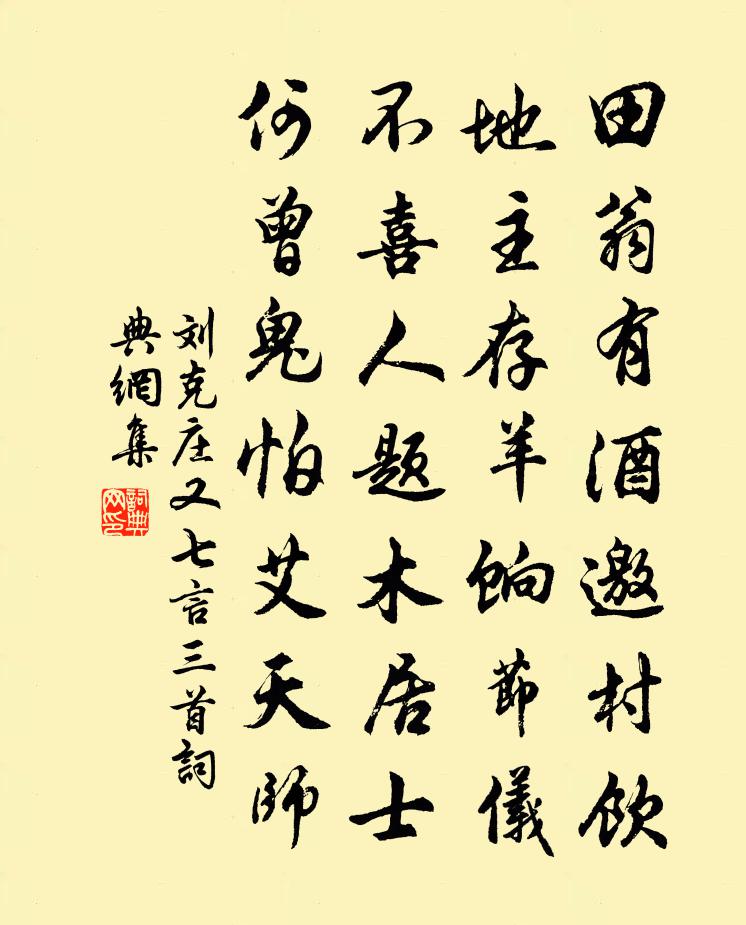 田翁有酒邀村饮
地主存羊饷節儀
不喜人题木居士
何曾鬼怕艾天師
刘克庄又七言三首詞
典網集
詞典
网印